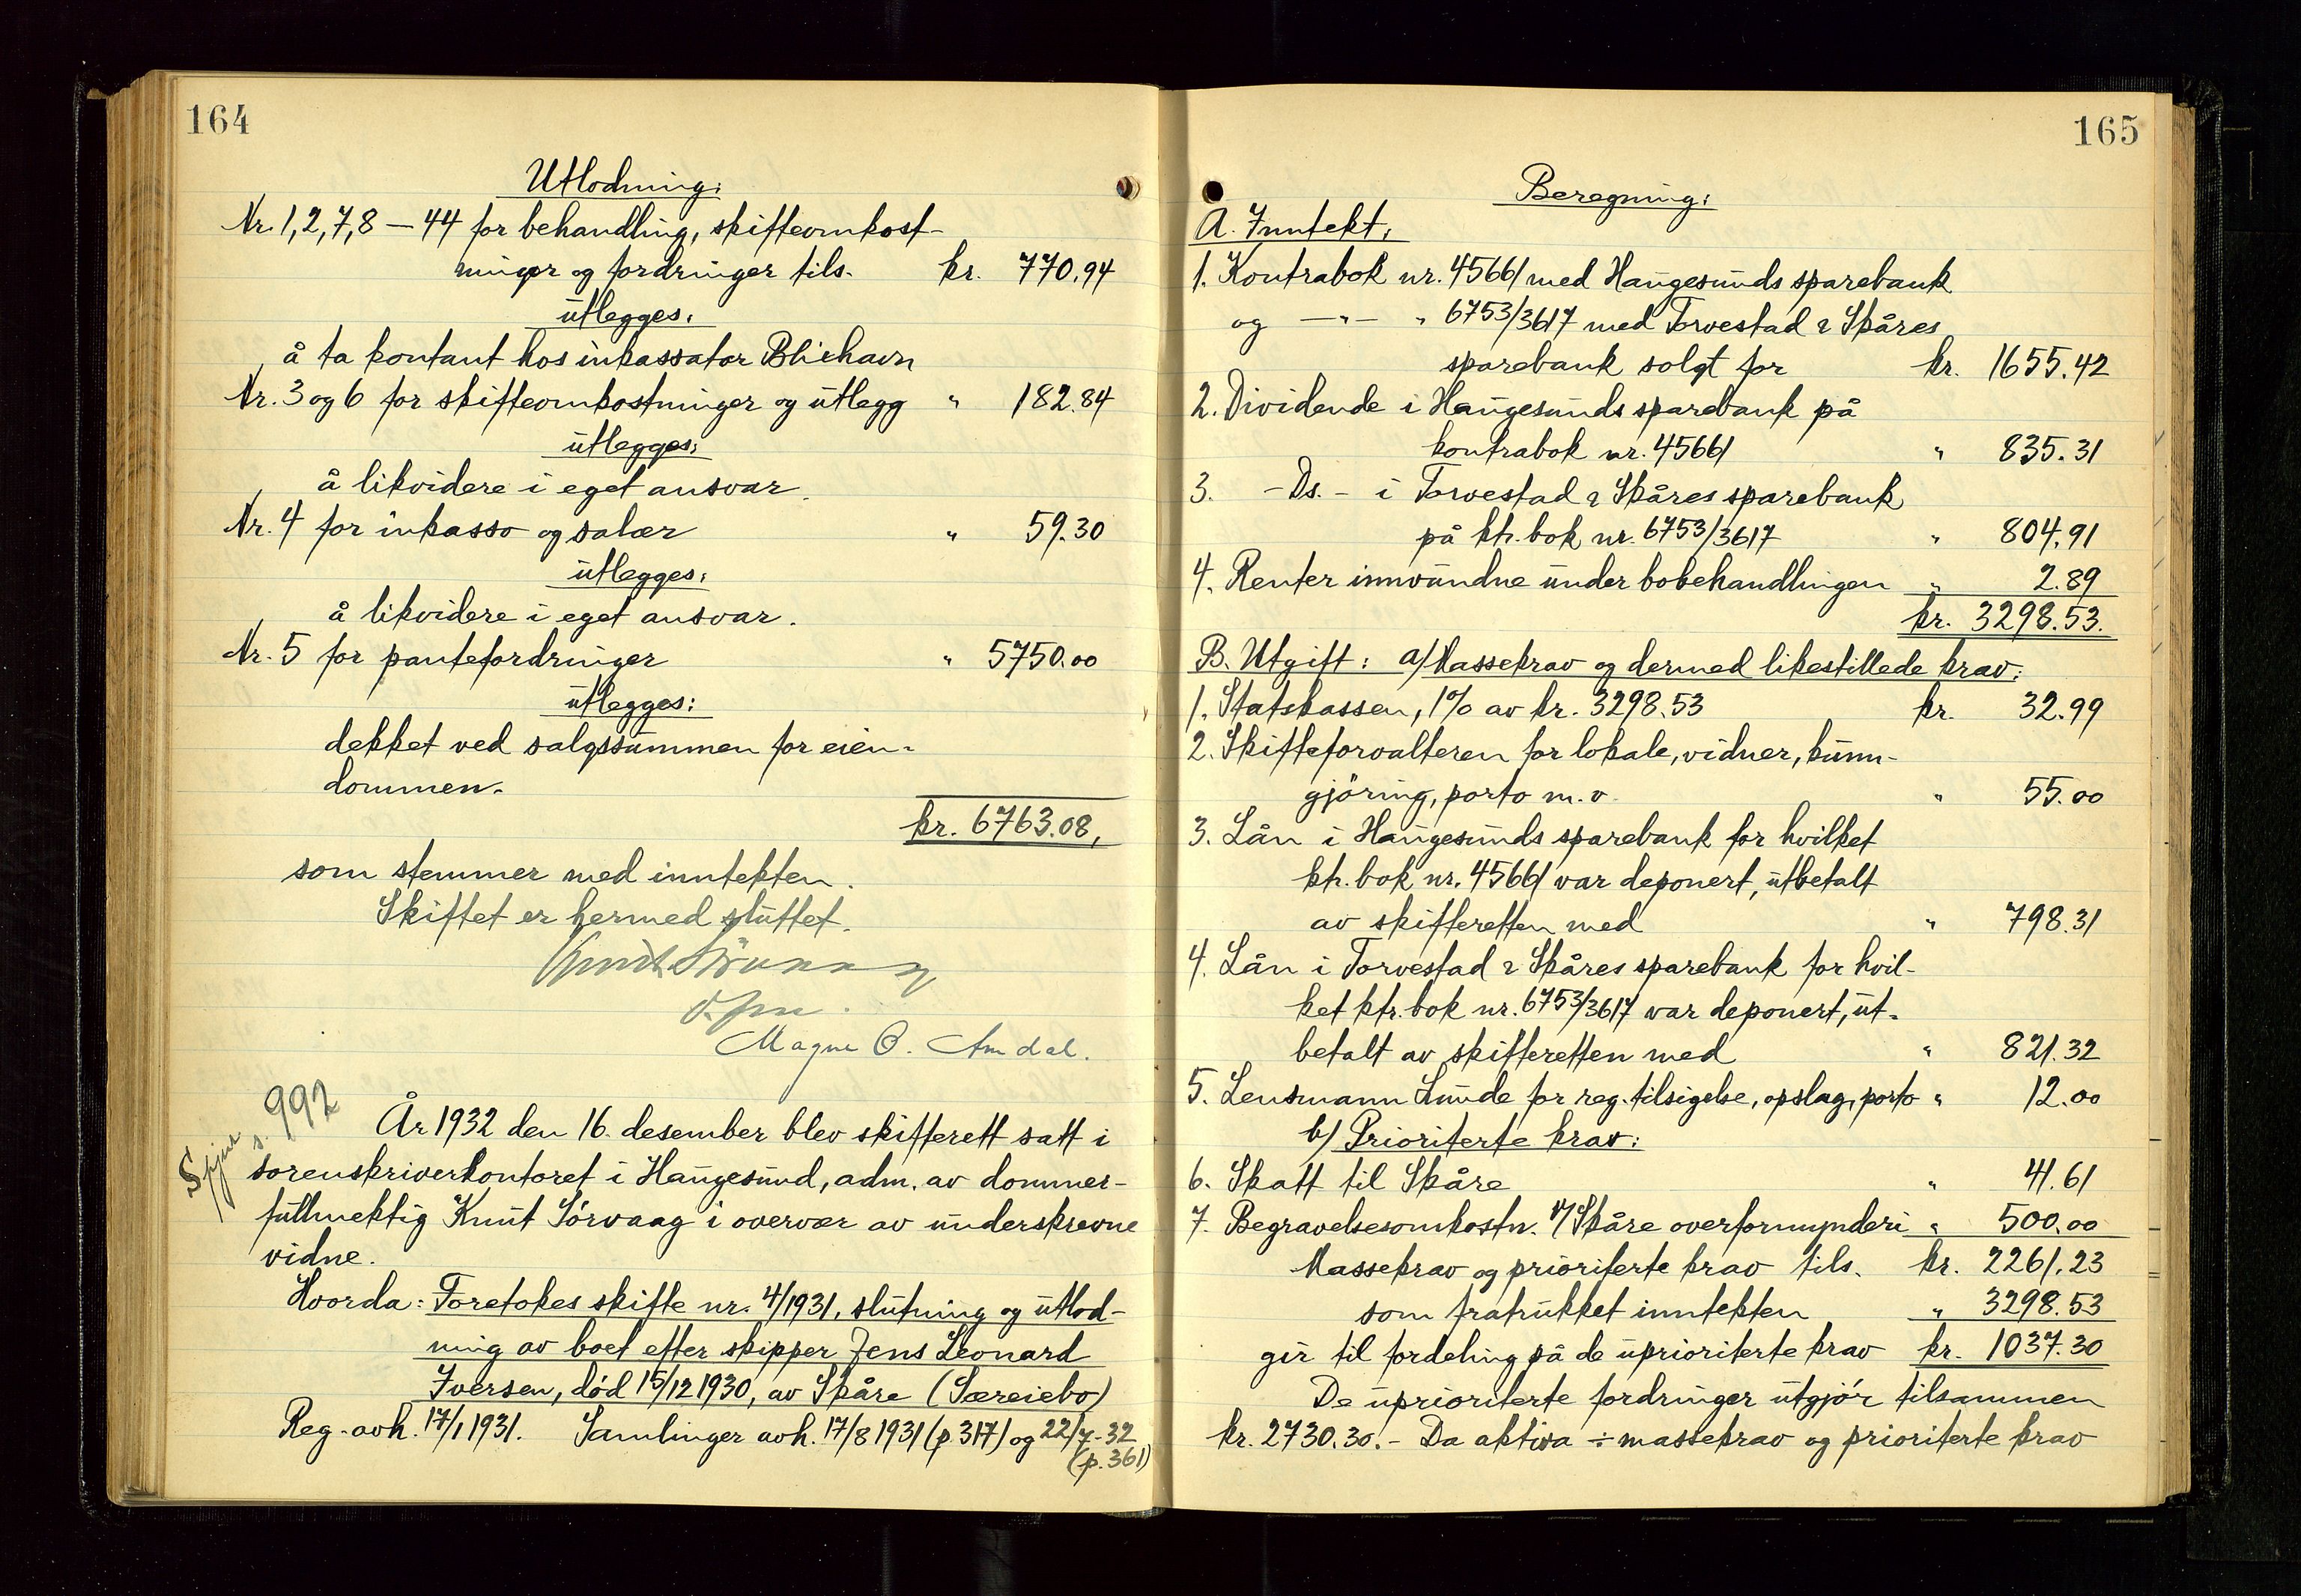 164
Utlodning:
Nr. 1, 2, 7, 8 — 44 for behandling, skifteomkost-
ninger og fordringer tils. kr. 770.94
utlegges:
å ta kontant hos inkassator Blixhavn
Nr. 3 og 6 for skifteomkostninger og utlegg " 182.84
utlegges:
å likvidere i eget ansvar.
Nr. 4 for inkasso og salær " 59.30
utlegges:
å likvidere i eget ansvar.
Nr. 5 for pantefordringer " 5750.00
utlegges:
dekket ved salgssummen for eien-
dommen.
kr. 6763.08,
som stemmer med inntekten.
Skiftet er hermed sluttet.
Knut Sörvaag
Magne O. Amdal.
s. 992
År 1932 den 16. desember blev skifterett satt i
sorenskriverkontoret i Haugesund, adm. av dommer-
fullmektig Knut Sörvaag i overvær av underskrevne
vidne.
Hvorda: Foretokes skifte nr. 4/1931, slutning og utlod-
ning av boet efter skipper Jens Leonard
Iversen, död 15/12 1930, av Skåre (Særeiebo)
Reg. avh. 17/1 1931. Samlinger avh. 17/8 1931 (p. 317) og 22/7-32
(p. 361)
165
Beregning:
A. Inntekt.
1. Kontrabok nr. 45661 med Haugesunds sparebank
og —"— " 6753/3617 med Torvestad & Skåres
sparebank solgt for kr. 1655.42
2. Dividende i Haugesunds sparebank på
kontrabok nr. 45661 " 835.31
3. -Ds.- i Torvestad & Skåres sparebank
på ktr. bok nr. 6753/3617 " 804.91
4. Renter innvundne under bobehandlingen " 2.89
kr. 3298.53.
B. Utgift: a) Massekrav og dermed likestillede krav:
1. Statskassen, 1% av kr. 3298.53 kr. 32.99
2. Skifteforvalteren for lokale, vidner, kunn-
gjöring, porto m.v. " 55.00
3. Lån i Haugesunds sparebank for hvilket
ktr. bok nr. 45661 var deponert, utbetalt
av skifteretten med " 798.31
4. Lån i Torvestad & Skåres sparebank for hvil-
ket ktr. bok nr. 6753/3617 var deponert, ut-
betalt av skifteretten med " 821.32
5. Lensmann Lunde for reg. tilsigelse, opslag, porto " 12.00
b) Prioriterte krav:
6. Skatt til Skåre " 41.61
7. Begravelsesomkostn. v/ Skåre overformynderi " 500.00
Massekrav og prioriterte krav tils. kr. 2261.23
som fratrukket inntekten " 3298.53
gir til fordeling på de uprioriterte krav kr. 1037.30
De uprioriterte fordringer utgjör tilsammen
kr. 2730.30.- Da aktiva ÷ massekrav og prioriterte krav